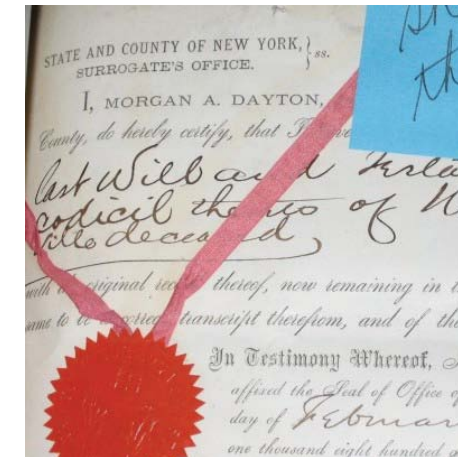 STATE AND COUNTY OF NEW YORK, } ss.
SURROGATE'S OFFICE.
I, MORGAN A. DAYTON,
County, do hereby certify, that I have
last Will and Testa
codicil thereto of
deceased
with the original record thereof, now remaining in
same to be a correct transcript therefrom, and of the
In Testimony Whereof,
affixed the Seal of Office of
day of Februar
one thousand eight hundred
th